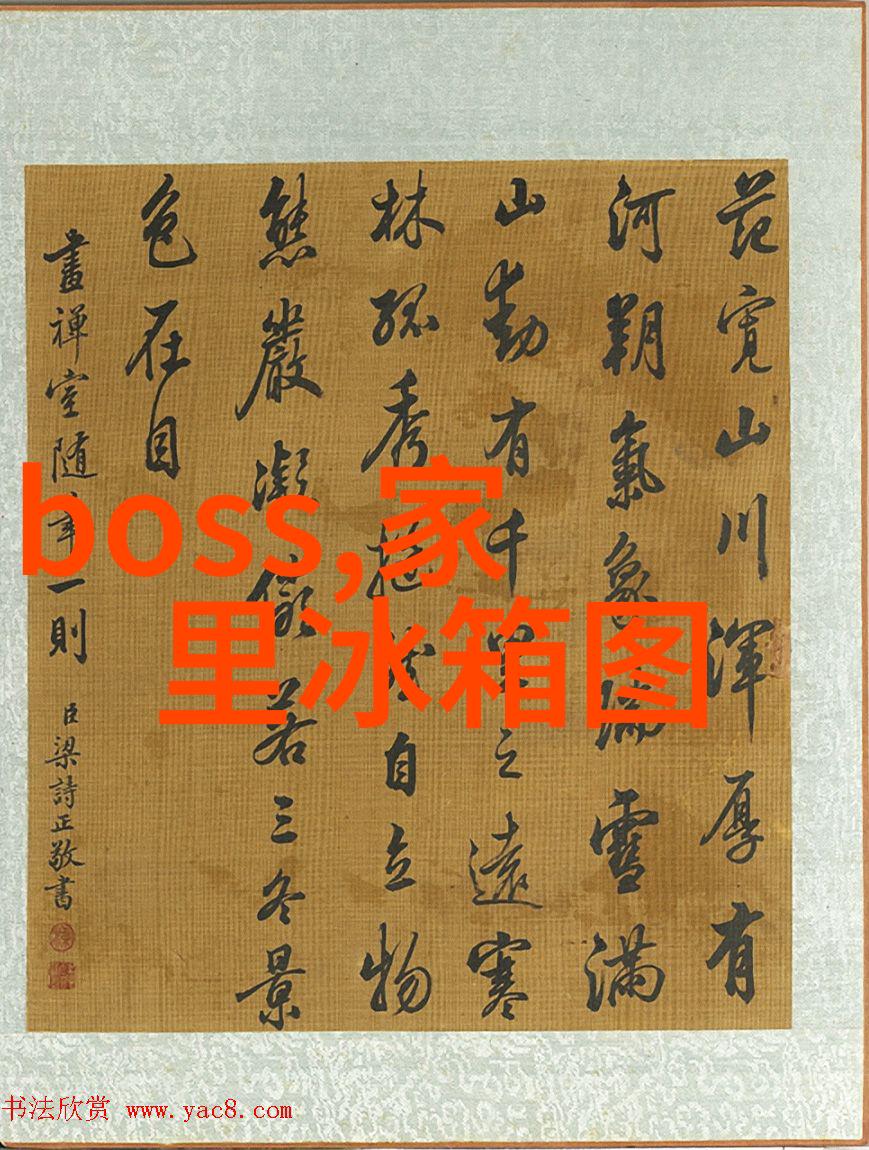 范寬山川渾厚有
河朔氣象瑞雪滿
山動有千里之遠寒
林孤秀挺然自立物
態嚴凝儼若三冬景
色在目
畫禪室隨筆一則 臣梁詩正敬書
boss,家
里冰箱图
书法欣赏 www.yac8.com